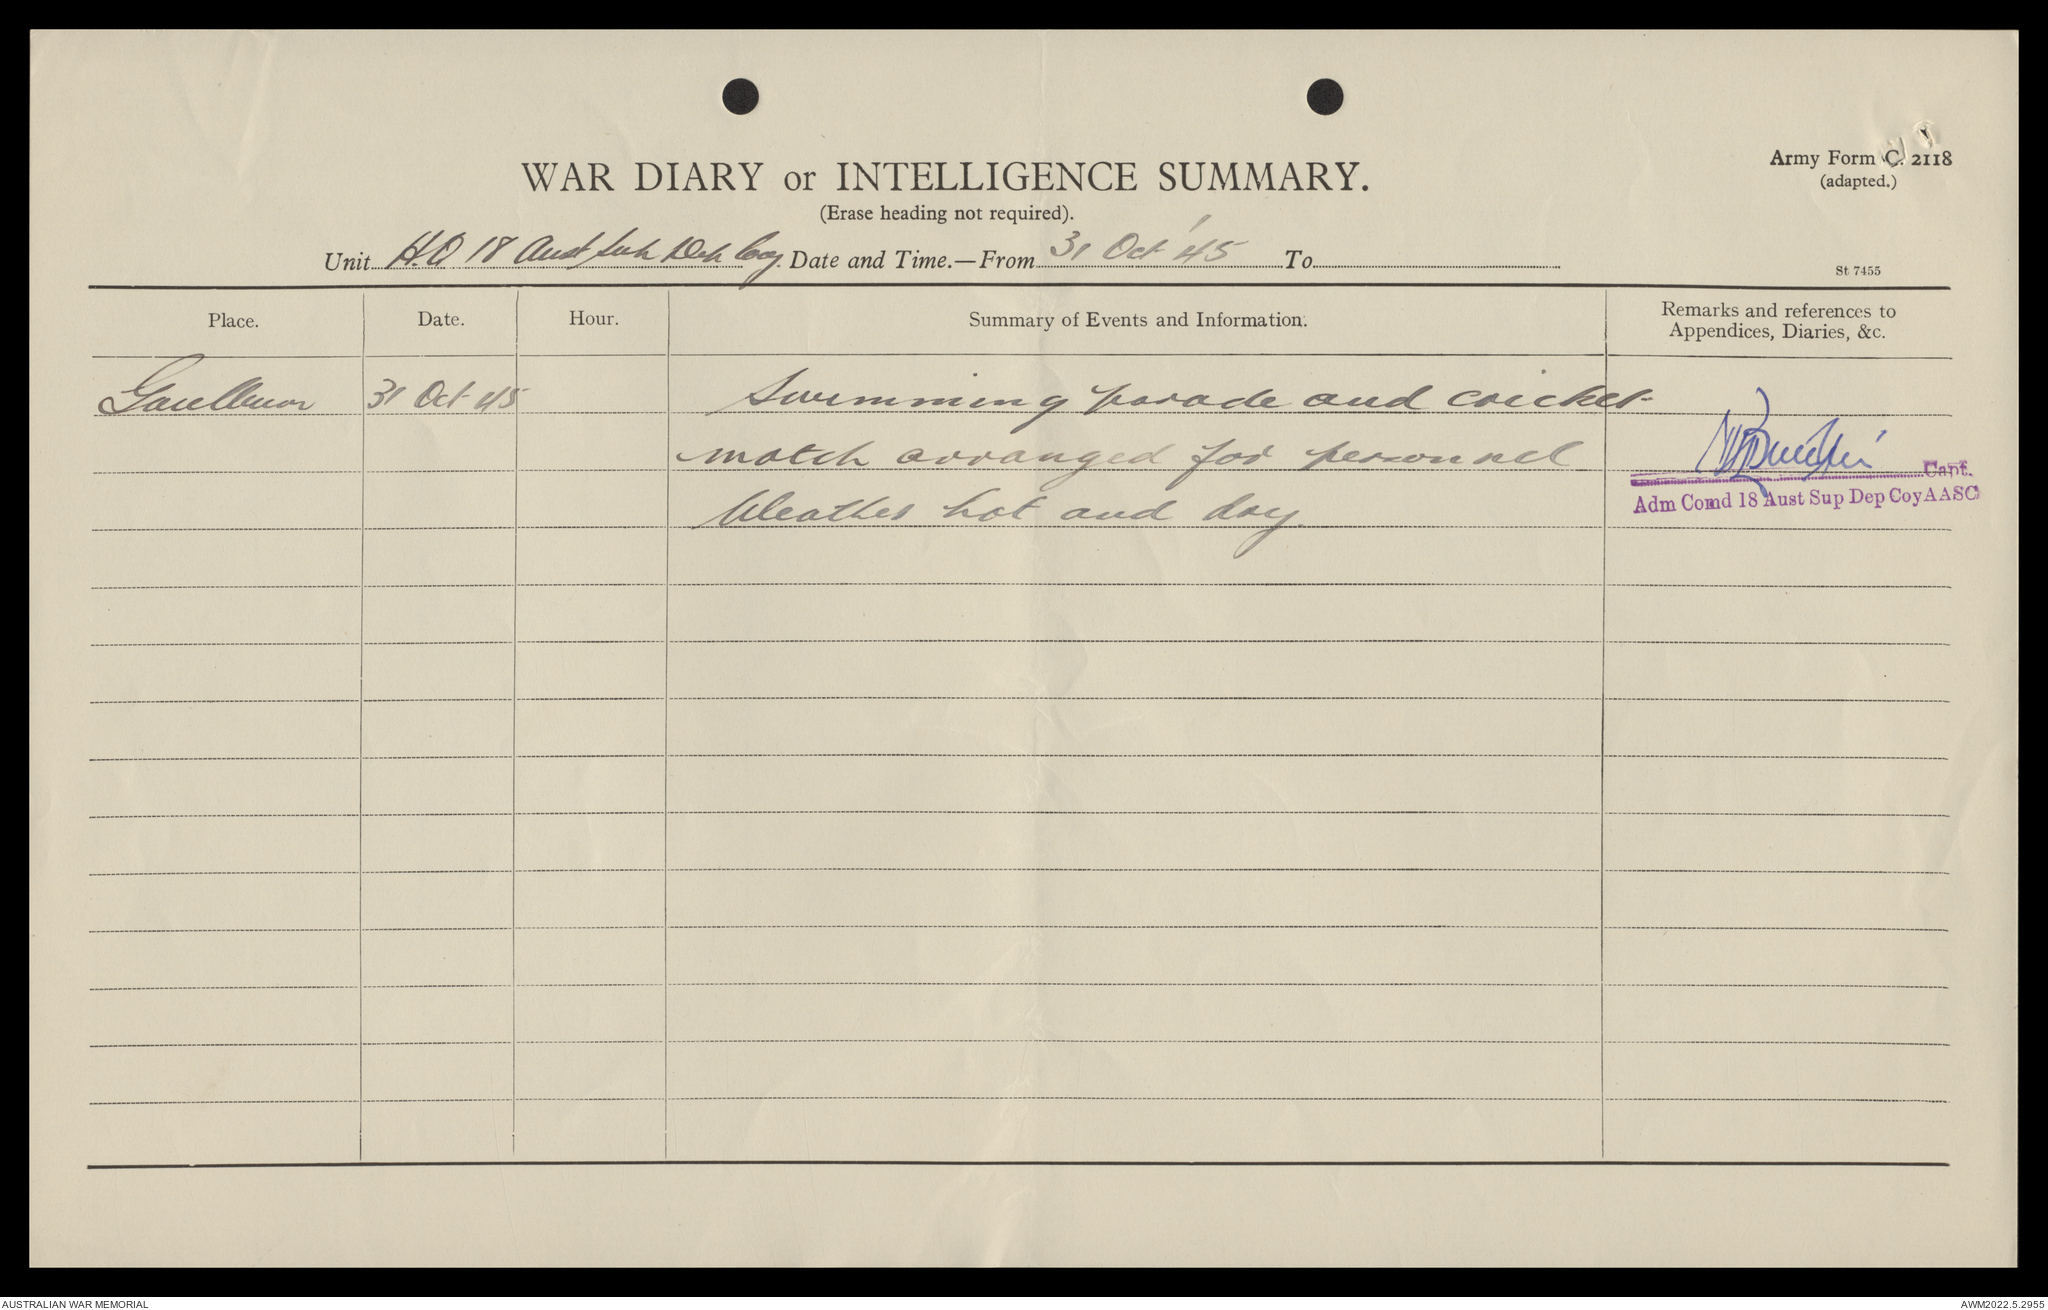 Army Form C. 2118
(adapted.)
WAR DIARY or INTELLIGENCE SUMMARY.
(Erase heading not required).
Unit H.Q 18 Aust Sup Dep Coy. Date and Time.—From 31 Oct '45 To
St 7455
Place. Date. Hour. Summary of Events and Information. Remarks and references to
Appendices, Diaries, &c.
31 Oct 45 Swimming parade and cricket
match arranged for personnel
Weather hot and dry.
Capt.
Adm Comd 18 Aust Sup Dep Coy AASC
AUSTRALIAN WAR MEMORIAL
AWM2022.5.2955